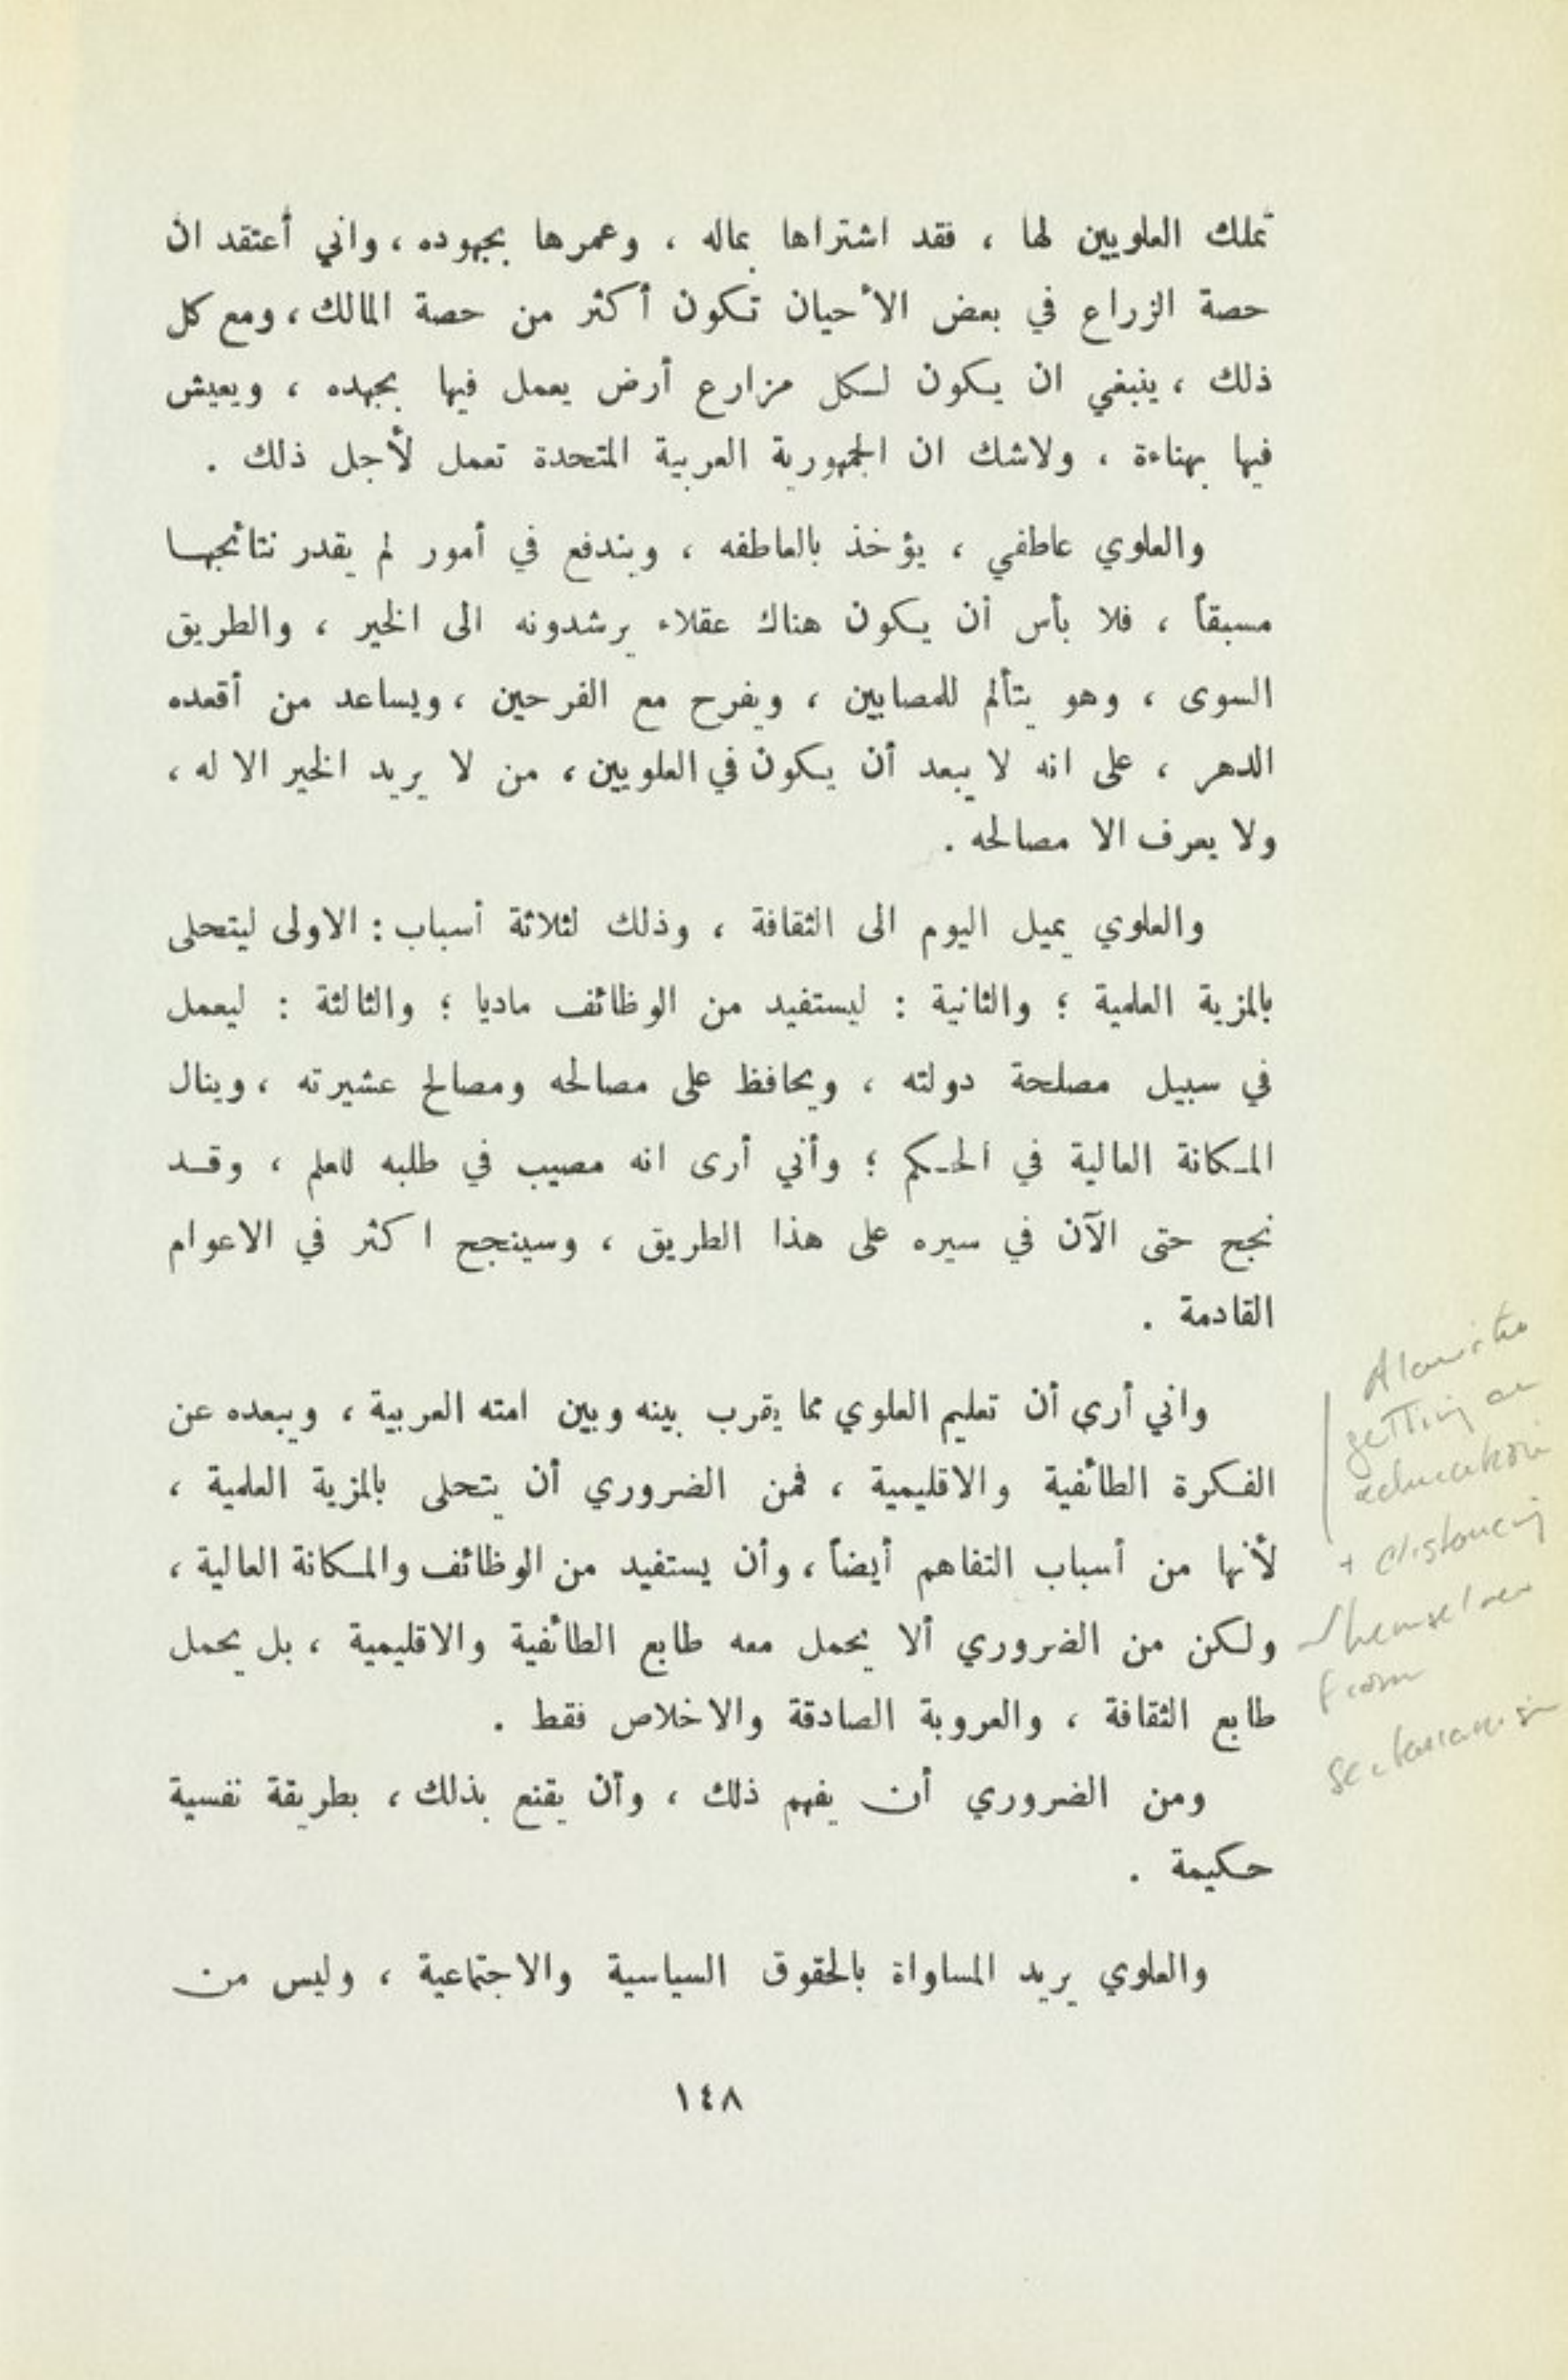 تملك العلويين لها ، فقد اشتراها بماله ، وعمرها بجهوده ، واني أعتقد ان
حصة الزراع في بعض الأحيان تكون أكثر من حصة المالك ، ومع كل
ذلك ، ينبغي ان يكون لكل مزارع أرض يعمل فيها بجهده ، ويعيش
فيها بهناءة ، ولاشك ان الجمهورية العربية المتحدة تعمل لأجل ذلك .
والعلوي عاطفي ، يؤخذ بالعاطفه ، ويندفع في أمور لم يقدر نتائجها
مسبقاً ، فلا بأس أن يكون هناك عقلاء يرشدونه الى الخير ، والطريق
السوى ، وهو يتألم للمصابين ، ويفرح مع الفرحين ، ويساعد من أقعده
الدهر ، على انه لا يبعد أن يكون في العلويين ، من لا يريد الخير الا له ،
ولا يعرف الا مصالحه .
والعلوي يميل اليوم الى الثقافة ، وذلك لثلاثة أسباب : الاولى ليتحلى
بالمزية العلمية ؛ والثانية : ليستفيد من الوظائف ماديا ؛ والثالثة : ليعمل
في سبيل مصلحة دولته ، ويحافظ على مصالحه ومصالح عشيرته ، وينال
المكانة العالية في الحكم ؛ وأني أرى انه مصيب في طلبه للعلم ، وقد
نجح حتى الآن في سيره على هذا الطريق ، وسينجح اكثر في الاعوام
القادمة .
واني أرى أن تعليم العلوي مما يقرب بينه وبين امته العربية ، ويبعده عن
الفكرة الطائفية والاقليمية ، فمن الضروري أن يتحلى بالمزية العلمية ،
لأنها من أسباب التفاهم أيضاً ، وأن يستفيد من الوظائف والمكانة العالية ،
ولكن من الضروري ألا يحمل معه طابع الطائفية والاقليمية ، بل يحمل
طابع الثقافة ، والعروبة الصادقة والاخلاص فقط .
ومن الضروري أن يفهم ذلك ، وأن يقنع بذلك ، بطريقة نفسية
حكيمة .
والعلوي يريد المساواة بالحقوق السياسية والاجتماعية ، وليس من
١٤٨
Alawites
getting an
education
+ distancing
themselves
from
sectarianism